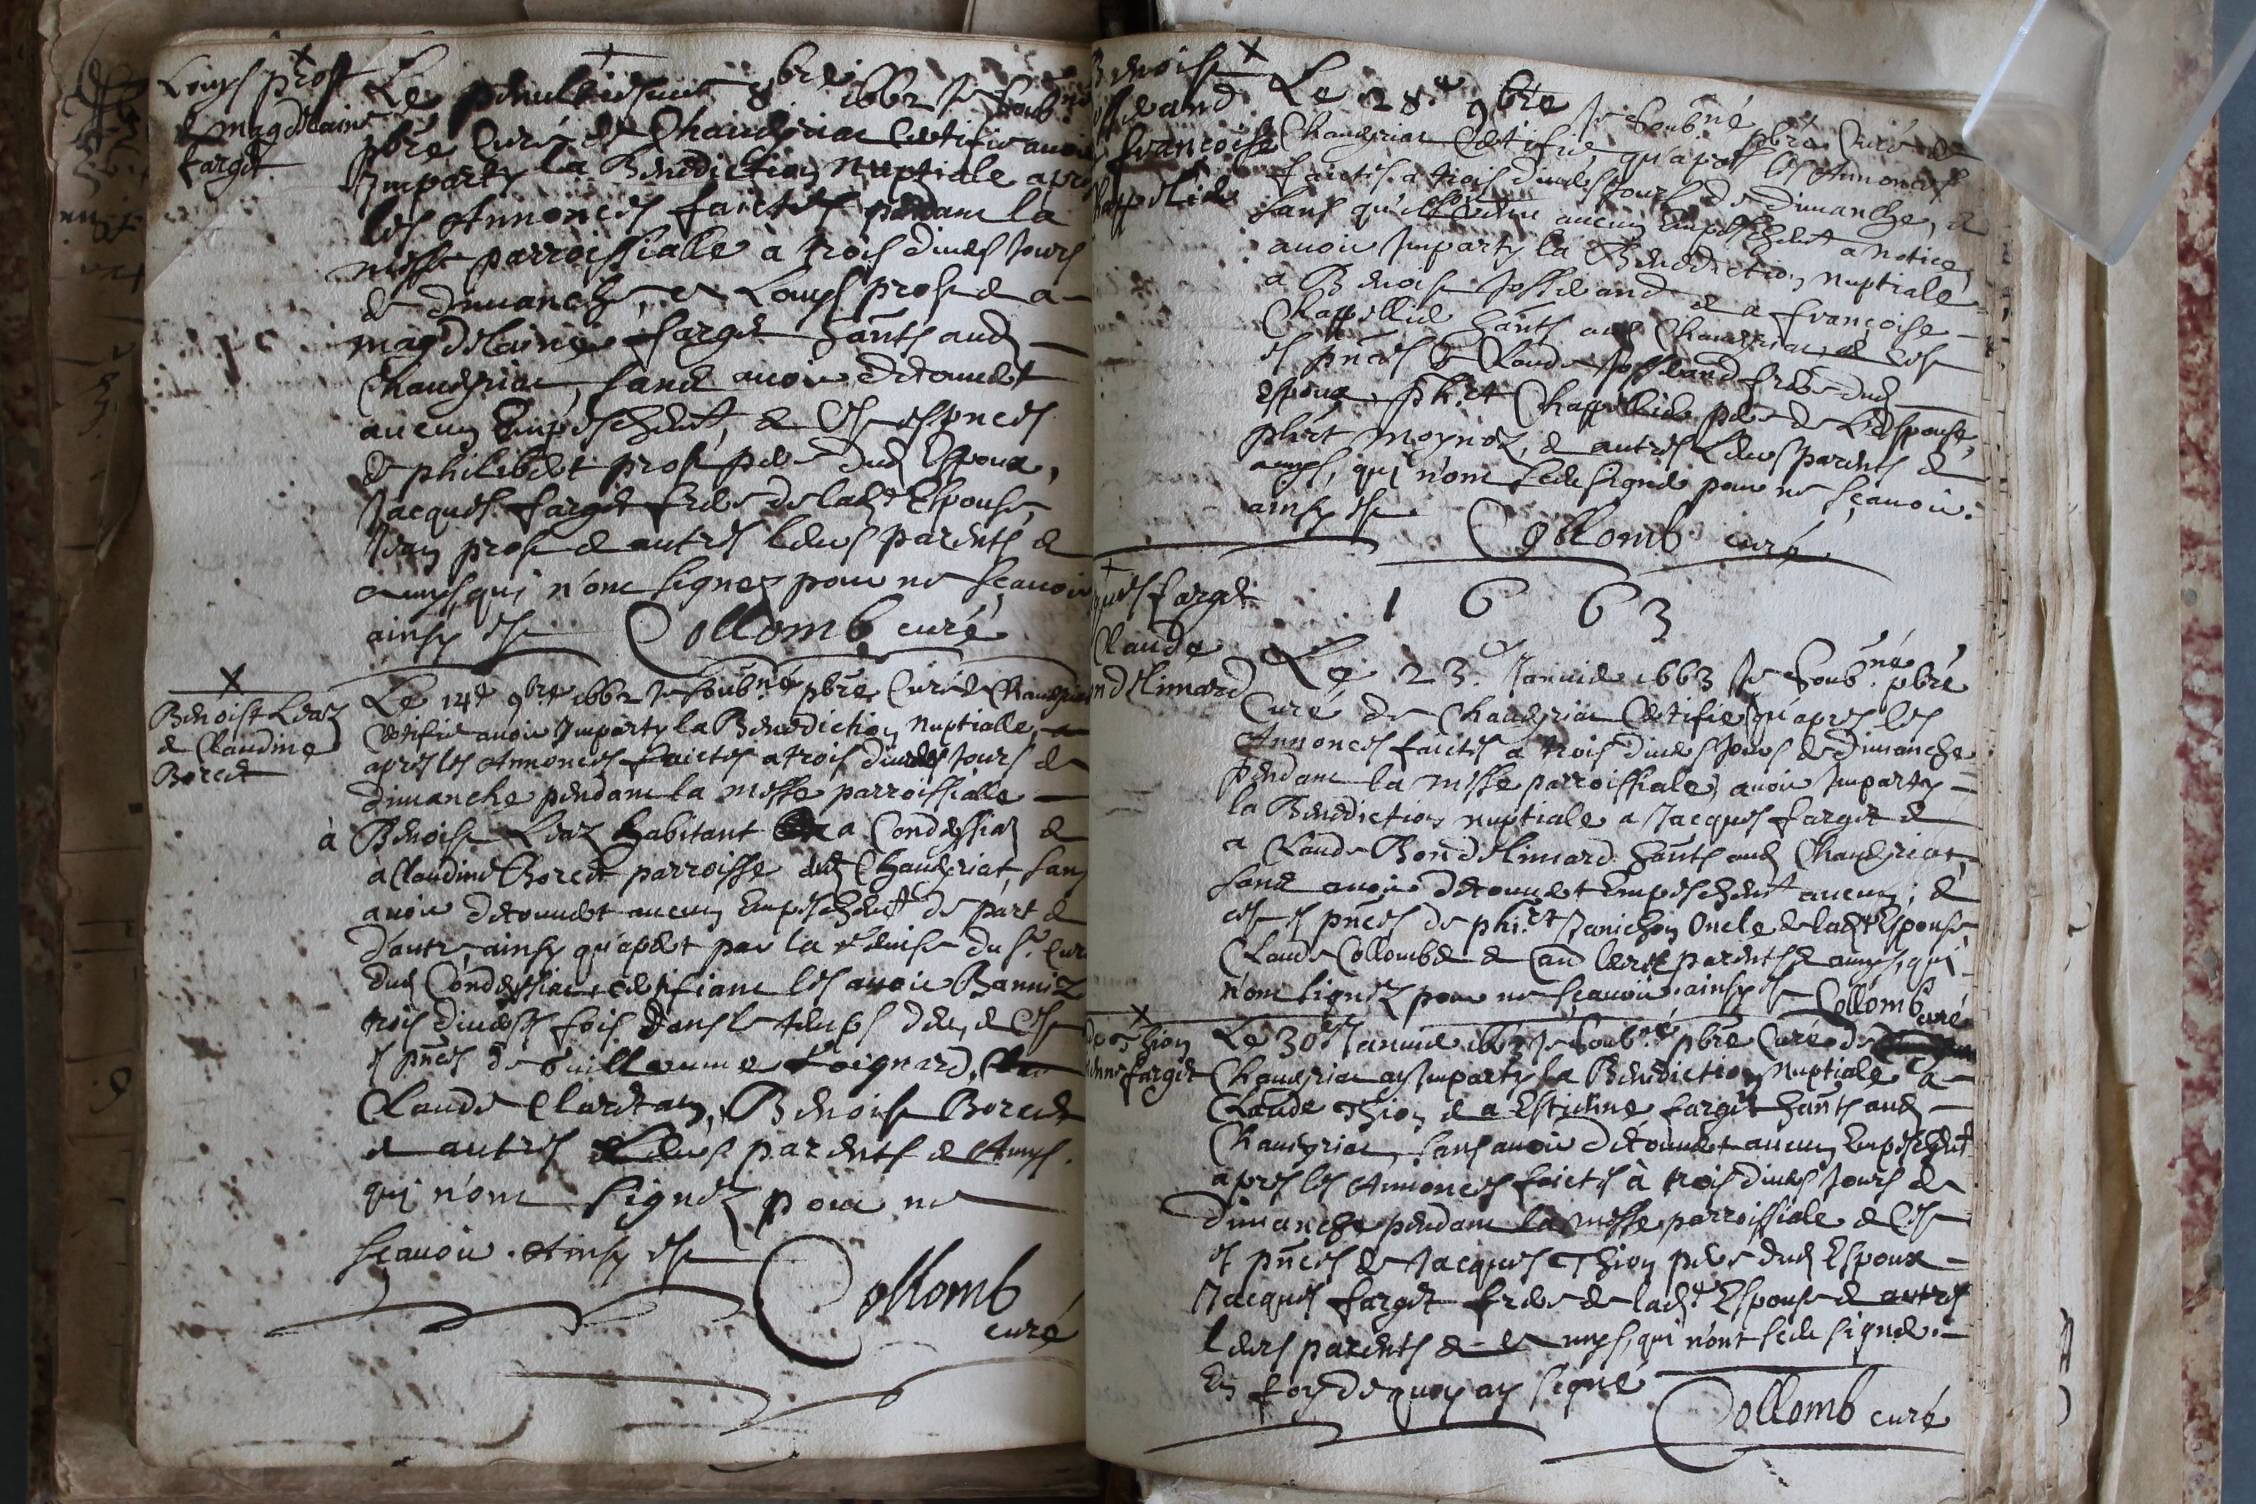 Louys prost
& magdelaine
farget
Le penultiesme 8bre 1662 Je soubné
pbre Curé de Chaneyriat Certifie avoir
Imparty la Benediction Nuptiale apres
les Annonces faictes pendant la
messe parroissialle à trois divers Jours
de dimanche, a Louys prost & a
magdelaine farget hants aud
Chaneyriat, sans avoir decouvert
aucun Empeschemt, & Ce es pnces
de philibert prost pere dud Espoux,
Jacques farget frere de lade Espouse,
Jean prost & autres leurs parents &
amys, qui n'ont signez pour ne scavoir
ainsy est Collomb curé
Benoist Leaz
& Claudine
Borcet
Le 14e 9bre 1662 Je soubné pbre Curé de Chaneyriat
Certifie avoir Imparty la Benediction Nuptialle
apres les Annonces faictes a trois divers Jours de
dimanche pendant la messe parroissialle
à Benoist Leaz habitant a Condeyssiat &
à Claudine Borcet parroisse dud Chaneyriat, sans
avoir decouvert aucun Empeschemt de part &
d'autre, ainsy qu'apert par la remise du Sr Curé
dud Condeyssiat certifiant les avoir Bannis
trois diverses fois dans le temps deu, & Ce
es pnces de Guillaume
Claude Benoist Borcet
& autres leurs parents & Amys.
qui n'ont signez pour ne
scavoir. Ainsy est
Collomb
curé
Benoist
Josserand
& françoise
Chappellier
Le 28e 9bre Je soubné pbre Curé de
Chaneyriat Certifie, qu'apres les Annonces
faictes a trois divers Jours de dimanche, &
sans qu'il soit venu aucun Empeschemt a notice,
avoir Imparty la Benediction nuptiale
a Benoist Josserand & a françoise
Chappellier hants aud Chaneyriat, & Ce
es pnces de Claude Josserand frere dud
Espoux, phirt Chappellier pere de L'Espouse,
phirt Moynoz, & autres leurs parents &
amys, qui n'ont sceu signer pour ne scavoir.
ainsy est Collomb curé
1663
Jacques farget
Claude
Bondelimard
Le 23e Janvier 1663 Je soubné pbre
Curé de Chaneyriat Certifie qu'apres les
Annonces faictes a trois divers Jours de dimanche
pendant la messe parroissiale, avoir Imparty
la Benediction nuptiale a Jacques farget &
a Claude Bondelimard hants aud Chaneyriat
sans avoir decouvert Empeschemt aucun; &
ce es pnces de phirt Janichon Oncle de lade Espouse
Claude Collomb & parents & amys, qui
n'ont signez pour ne scavoir. ainsy est Collomb
curé
Claude Thion
Estienne farget
Le 30e Janvier 1663 Je soubné pbre Curé de
Chaneyriat ay Imparty la Benediction Nuptiale a
Claude Thion & a Estienne farget hants aud
Chaneyriat, sans avoir decouvert aucun Empeschemt
apres les Annonces faictes à trois divers Jours de
dimanche pendant la messe parroissiale & Ce
es pnces de Jacques Thion pere dud Espoux
Jacques farget frere de lade Espouse & autres
leurs parents & amys, qui n'ont sceu signer.
En foy de quoy ay signé
Collomb curé